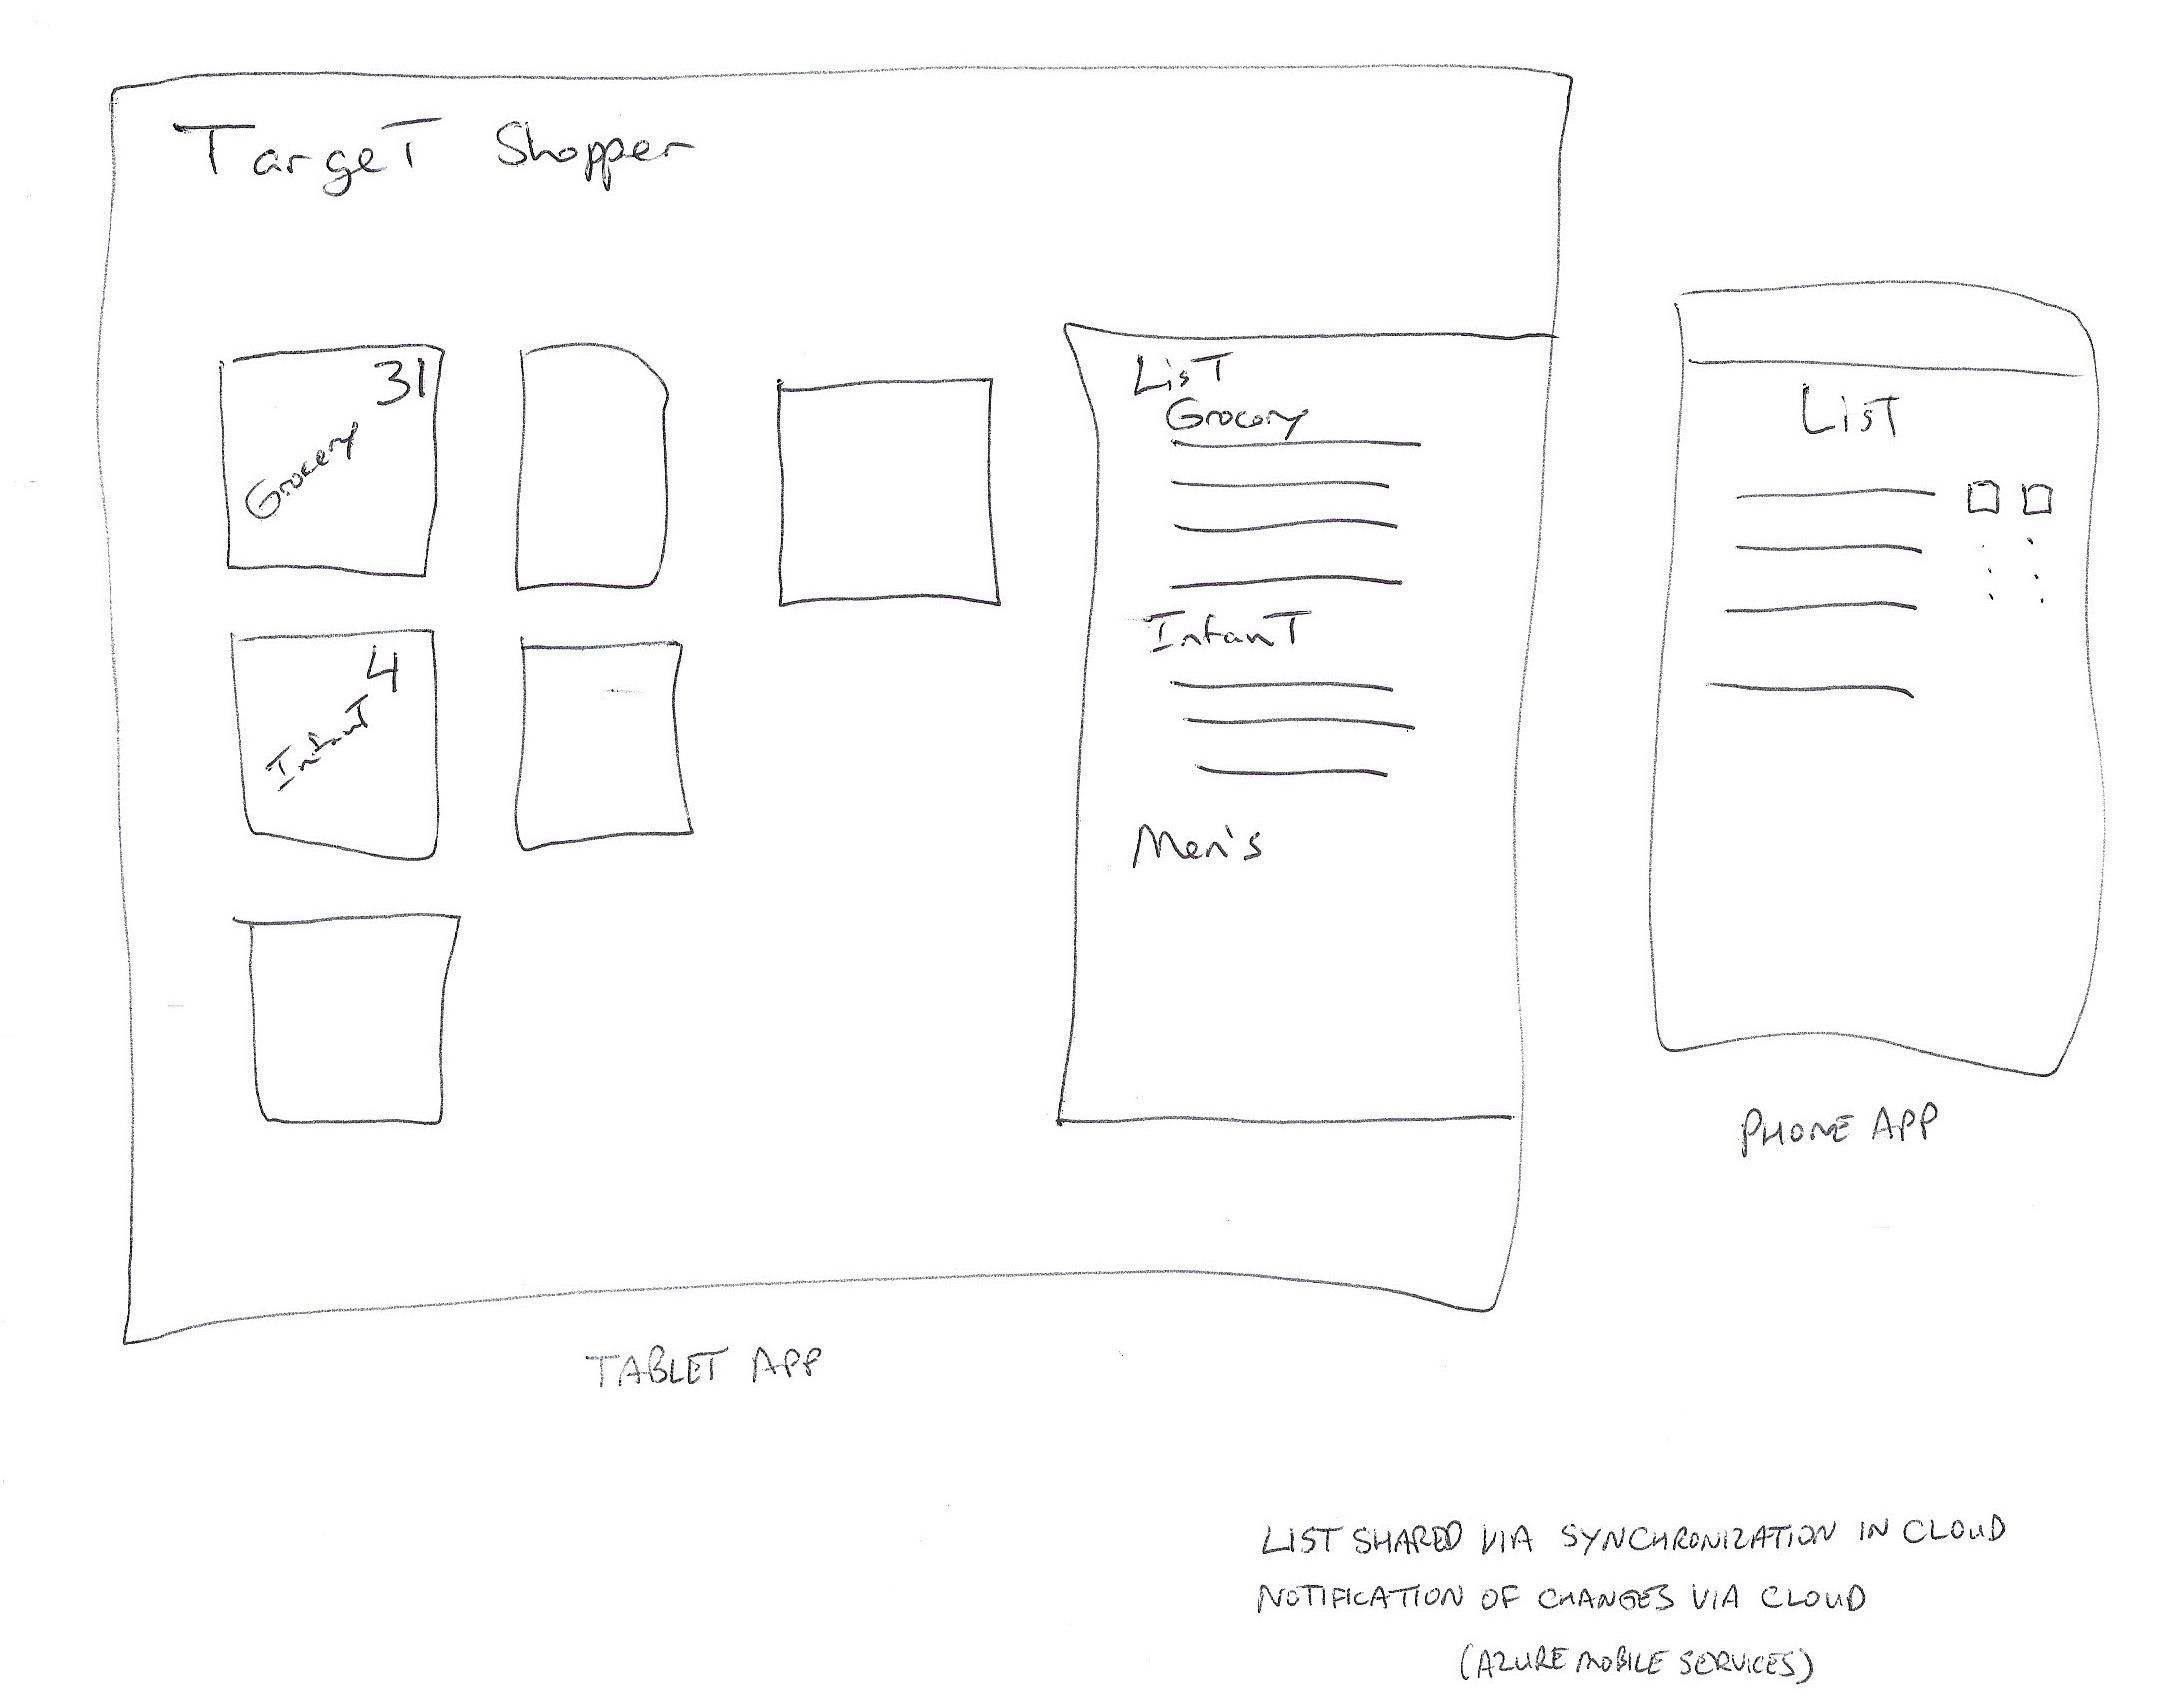 TargeT Shopper
31
Grocery
4
InfanT
LisT
Grocery
InfanT
Men's
LisT
PHONE APP
TABLET APP
LIST SHARED VIA SYNCHRONIZATION IN CLOUD
NOTIFICATION OF CHANGES VIA CLOUD
(AZURE MOBILE SERVICES)